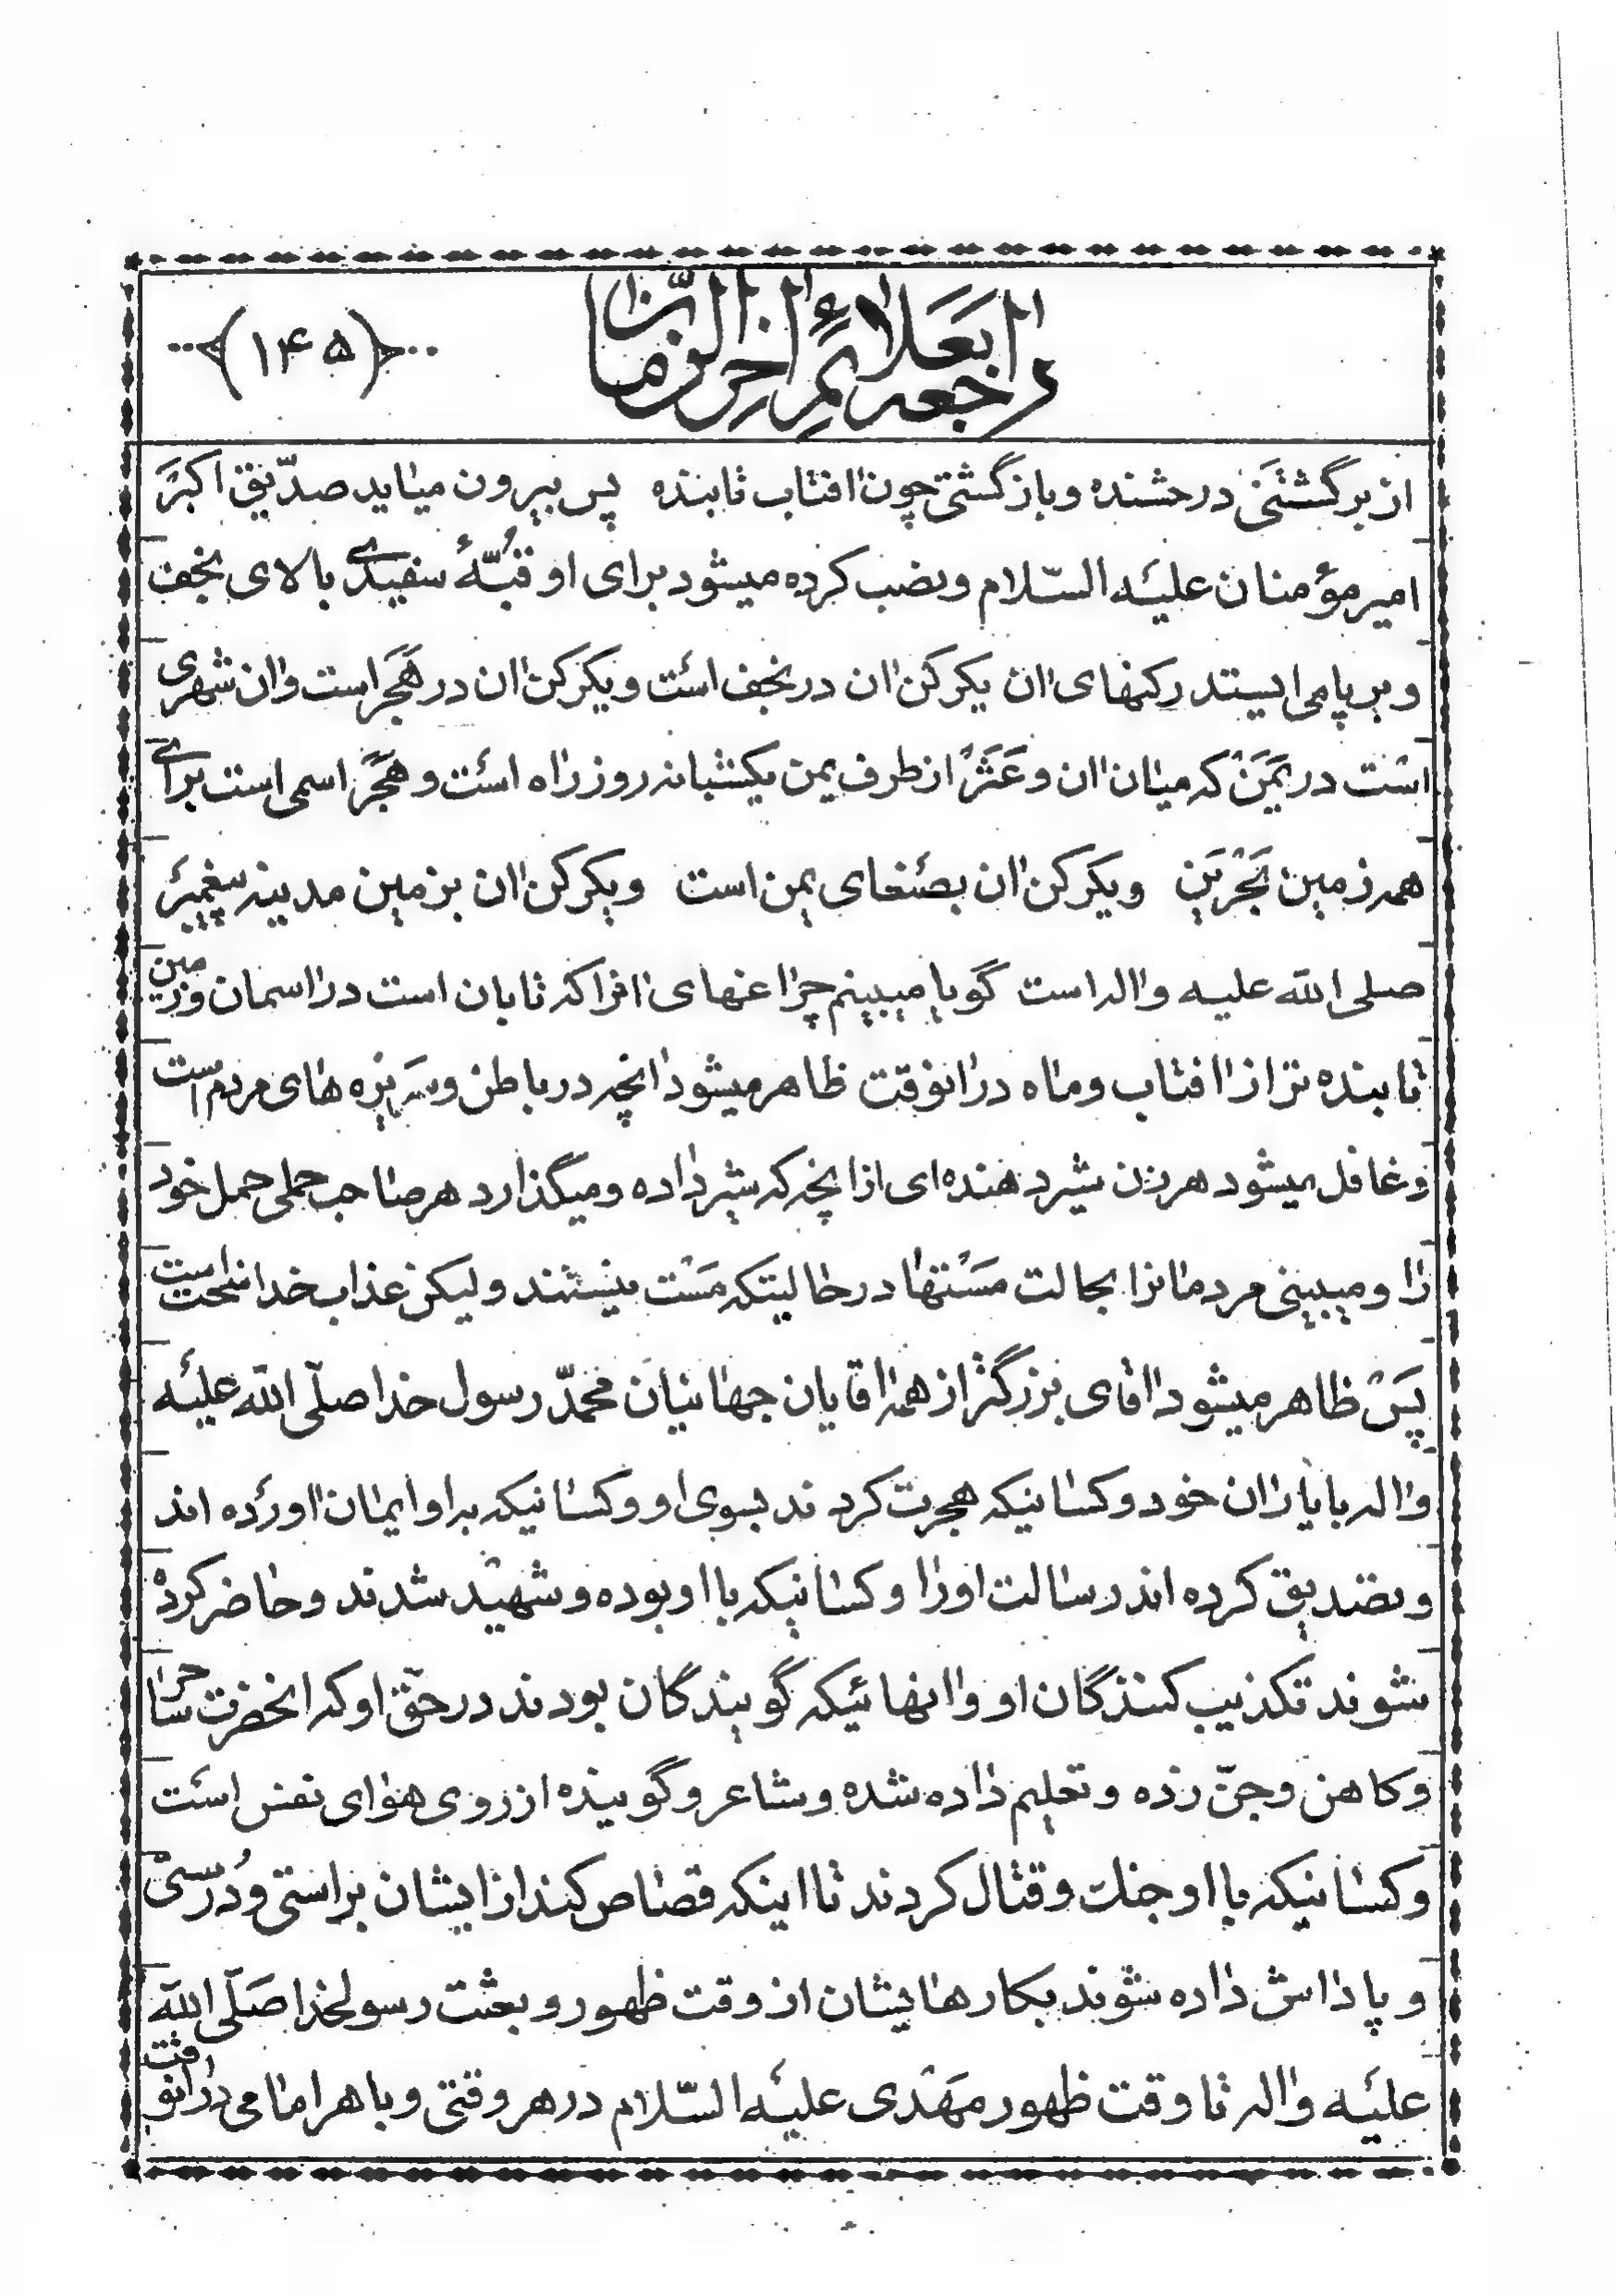 راجعه بعلائم اخر الزمان
(۱۴۵)
از برگشتنی درخشنده و بازگشتی چون افتاب تابنده پس بیرون میاید صدّیق اکبر
امیر مؤمنان علیه السّلام و نصب کرده میشود برای او قبّهٔ سفیدی بالای نجف
و بر پا می ایستد رکنهای ان یکرکن ان در نجف است و یکرکن ان در هَجَر است و ان شهری
است در یَمَن که میان ان و عَثَر از طرف یمن یکشبانه روز راه است و هَجَر اسمی است برای
همه زمین بَحْرَین و یکرکن ان بصنعای یمن است و یکرکن ان بزمین مدینه پیغمبر
صلی الله علیه و اله است گویا میبینم چراغهای انرا که تابان است در اسمان و زمین
تابنده تر از افتاب و ماه در انوقت ظاهر میشود انچه در باطن و سریره های مردم است
و غافل میشود هر زن شیر دهنده ای از انچه که شیر داده و میگذارد هر صاحب حملی حمل خود
را و میبینی مردمانرا بحالت مستها در حالیتکه مست نیستند و لیکن عذاب خدا سخت است
پس ظاهر میشود اقای بزرگتر از همه اقایان جهانیان محمّد رسول خدا صلّی الله علیه
و اله با یاران خود و کسانیکه هجرت کردند بسوی او و کسانیکه به او ایمان اورده اند
و تصدیق کرده اند رسالت او را و کسانیکه با او بوده و شهید شدند و حاضر کرده
شوند تکذیب کنندگان او و انهائیکه گویندگان بودند در حقّ او که انحضرت ساحر
و کاهن و جنّ زده و تعلیم داده شده و شاعر و گوینده از روی هوای نفس است
و کسانیکه با او جنک و قتال کردند تا اینکه قصاص کند از ایشان براستی و درستی
و پاداش داده شوند بکارهایشان از وقت ظهور و بعثت رسولخدا صَلّی الله
علیه و اله تا وقت ظهور مهدی علیه السّلام در هر وقتی و با هر امامی در انوقت